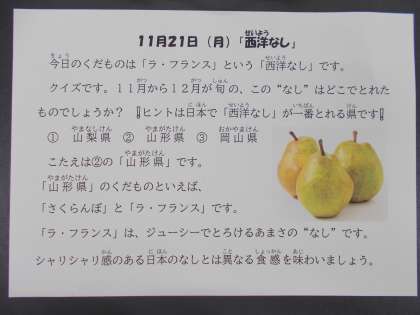 11月21日（月）「西洋なし」
今日のくだものは「ラ・フランス」という「西洋なし」です。
クイズです。11月から12月が旬の、この“なし”はどこでとれた
ものでしょうか？　！ヒントは日本で「西洋なし」が一番とれる県です！
①　山梨県　②　山形県　③　岡山県
こたえは②の「山形県」です。
「山形県」のくだものといえば、
「さくらんぼ」と「ラ・フランス」です。
「ラ・フランス」は、ジューシーでとろけるあまさの“なし”です。
シャリシャリ感のある日本のなしとは異なる食感を味わいましょう。